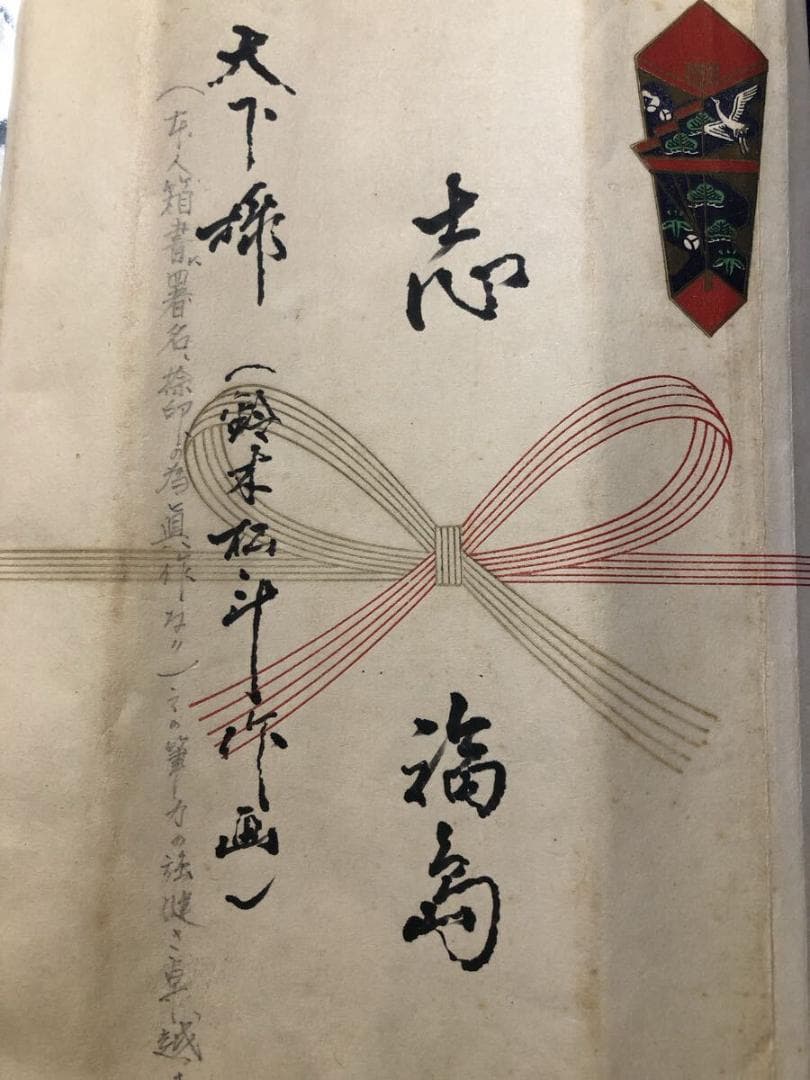 志
福島
天下様（鈴木松斗作画）
（本人箱書に署名、捺印の為真作な〃）その筆力の強健さ卓越